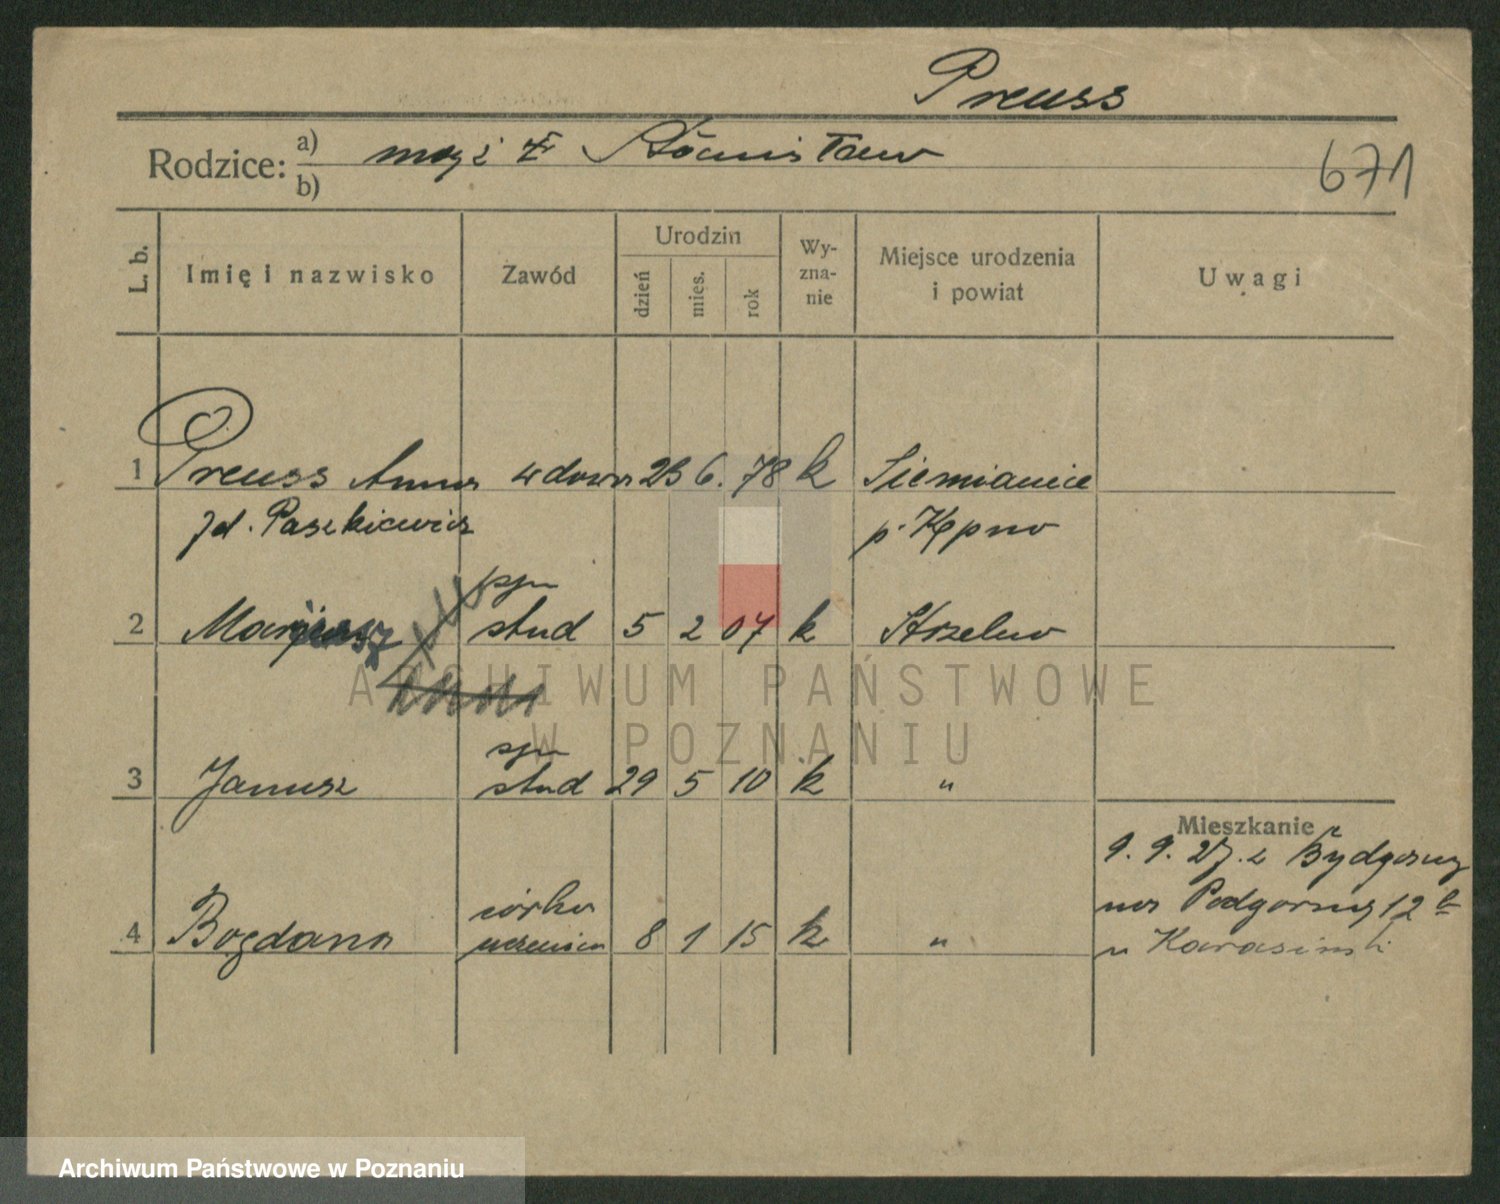 Preuss
Rodzice: a) mąż Stanisław
b)
671
L. b.
Imię i nazwisko
Zawód
Urodzin
dzień
mies.
rok
Wy-
zna-
nie
Miejsce urodzenia
i powiat
Uwagi
1 Preuss Anna wdowa 23 6. 78 k Siemianice
zd. Paszkiewicz p. Kępno
syn
2 Marjusz stud 5 2 07 k Strzelno
syn
3 Janusz stud 29 5 10 k "
Mieszkanie
9. 9. 27. z Bydgoszczy
córka
na Podgórną 12
4 Bogdana uczenica 8 1 15 k "
u Karasinski
ARCHIWUM PAŃSTWOWE
W POZNANIU
Archiwum Państwowe w Poznaniu